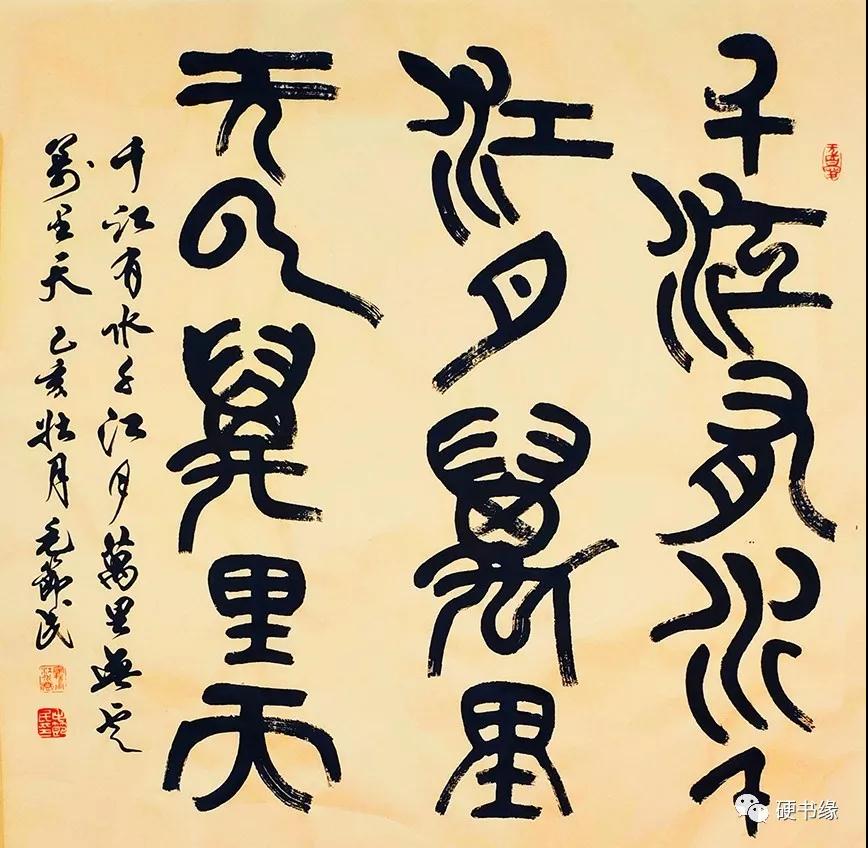 千江有水千
江月萬里
无云萬里天
千江有水千江月萬里無云
萬里天 己亥壯月 毛節民
硬书缘